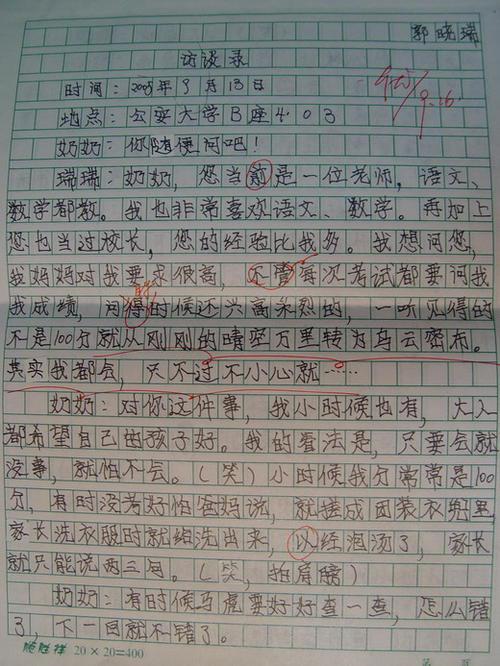 郭晓瑞
访谈录
时间：2008年9月13日
地点：公安大学B座403
优 9.16.
奶奶：你随便问吧！
瑞瑞：奶奶，您当前是一位老师，语文、
数学都教。我也非常喜欢语文、数学。再加上
您也当过校长，您的经验比我多。我想问您，
我妈妈对我要求很高，不管每次考试都要问我
我成绩，问得的时候还兴高采烈的，一听见得的
不是100分就从刚刚的晴空万里转为乌云密布。
其实我都会，只不过不小心就……
奶奶：对你这件事，我小时候也有，大人
都希望自己的孩子好。我的看法是，只要会就
没事，就怕不会。（笑）小时候我分常常是100
分，有时没考好怕爸妈说，就揉成团装衣兜里
家长洗衣服时就给洗出来，以经泡汤了，家长
就只能说两三句。（笑，拍肩膀）
奶奶：有时候马虎要好好查一查，怎么错
了，下一回就不错了。
20×20=400